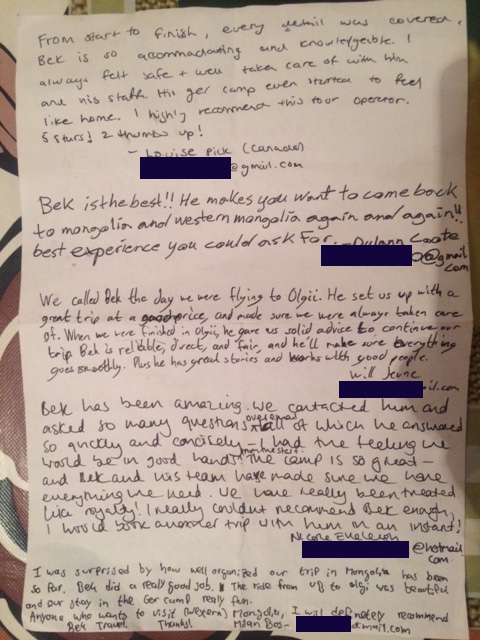 From start to finish, every detail was covered.
Bek is so accommadating and knowledgeible. I
always felt safe + well taken care of with him
and his staff. His ger camp even started to feel
like home. I highly recommend this tour operator.
5 stars! 2 thumbs up!
- Louise Pick (Canada)
@gmail.com
Bek is the best!! He makes you want to come back
to mongolia and western mongolia again and again!!
best experience you could ask for. - Dylann Coote
@gmail
com
We called Bek the day we were flying to Olgii. He set us up with a
great trip at a good price, and made sure we were always taken care
of. When we were finished in Olgii, he gave us solid advice to continue our
trip. Bek is relible, direct, and fair, and he'll make sure everything
goes smoothly. Plus he has great stories and works with good people.
Will
il.com
Bek has been amazing. We contacted him and
asked so many questions over email all of which he answered
so quickly and concisely - I had the feeling we
would be in good hands from the start. The camp is so great -
and Bek and his team have made sure we have
everything we need. We have really been treated
like royalty! I really couldn't recommend Bek enough,
I would book another trip with him in an instant!
Nicole
@hotmail
com
I was surprised by how well organized our trip in Mongolia has been
so far. Bek did a really good job. The ride from UB to olgi was beautiful
and our stay in the Ger camp really fun.
Anyone who wants to visit (Western) Mongolia, I will definetely recommend
Bek Travel. Thanks! Milan Bos -
otmail.com